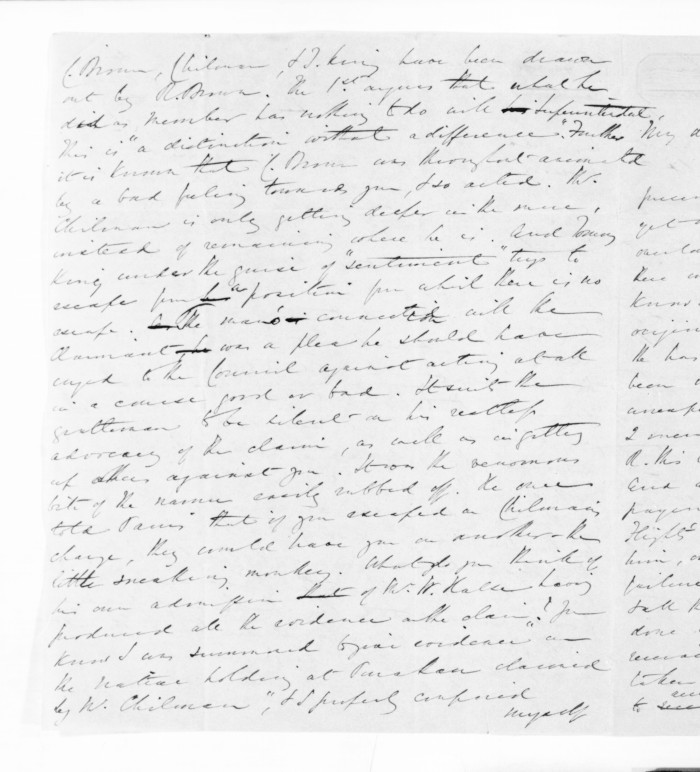 C. Brown, Chilman, & T. King have been drawn
out by R. Brown. The 1st argues that what he
did as member has nothing to do with his Superintendent,
This is "a distinction without a difference". Further "My d
it is known that C. Brown was throughout animated
by a bad feeling towards you, & so acted. Mr.
Chilman is only getting deeper in the mire,
instead of remaining where he is. And Tommy
King under the guise of "sentiment" tries to
escape from a position from which there is no
escape. The man's connection with the
Claimant was a plea he should have
urged to the Council against acting at all
in a course good or bad. It suits the
gentleman to be silent on his restless
advocacy of the claim, as well as in getting
up others against you. It was the venomous
bite of the easily rubbed off. He once
told that if you escaped on Chilman's
charge, they would have you on another – the
little sneaking monkey. What do you think of
his own admission of Mr. W. Halse having
produced all the evidence in the claim? You
know I was summoned "to give evidence in
the native holding at claimed
by W. Chilman", & I properly confined
myself
prece
get
over
there
know
origin
he has
been
unexp
2
R. this
and
prayer
Flight
him,
failure
talk
done
taken
to